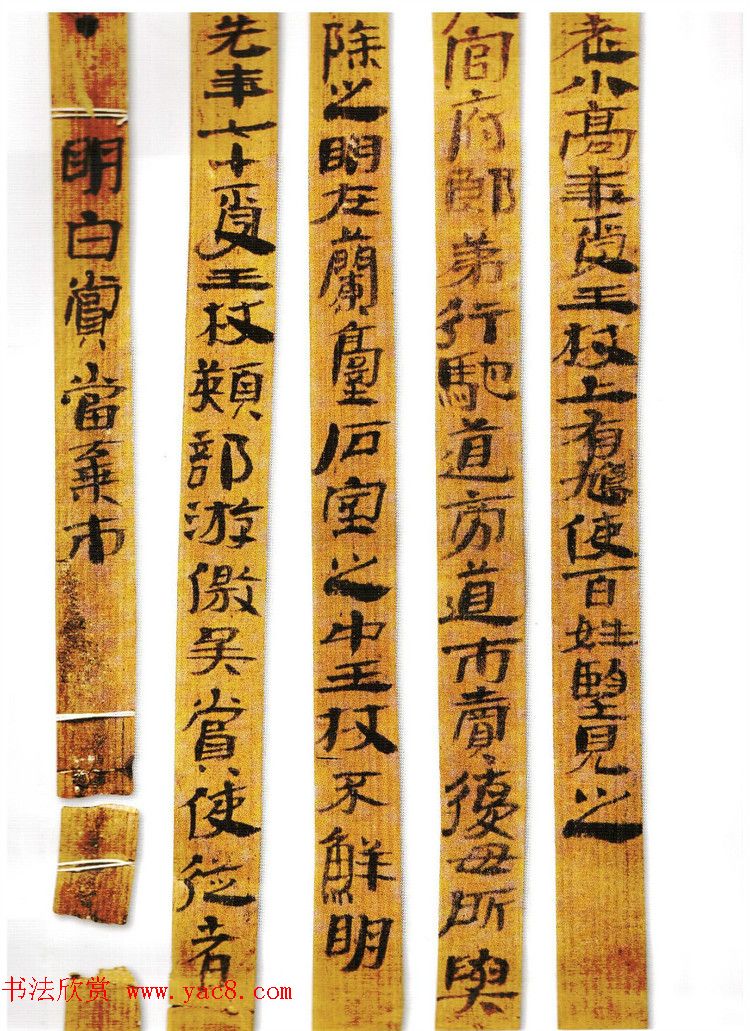 老小高年受王杖上有鳩使百姓望見之
官府節弟行馳道旁道市賣復毋所與
除之明在蘭臺石室之中王杖不鮮明
先年七十受王杖頰部游徼吴賞使從者
明白賞當棄市
书法欣赏 www.yac8.com